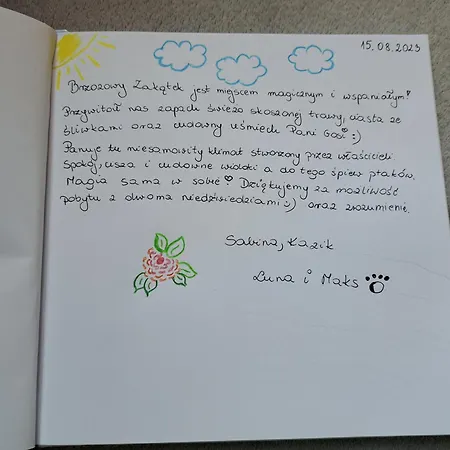 15.08.2023
Brzozowy Zakątek jest miejscem magicznym i wspaniałym!
Przywitał nas zapach świeżo skoszonej trawy, ciasta ze
śliwkami oraz cudowny uśmiech Pani Gosi :)
Panuje tu niesamowity klimat stworzony przez właścicieli.
Spokój, cisza i cudowne widoki a do tego śpiew ptaków.
Magia sama w sobie ♡ Dziękujemy za możliwość
pobytu z dwoma niedźwiedziami :) oraz zrozumienie.
Sabina, Kazik
Luna i Maks